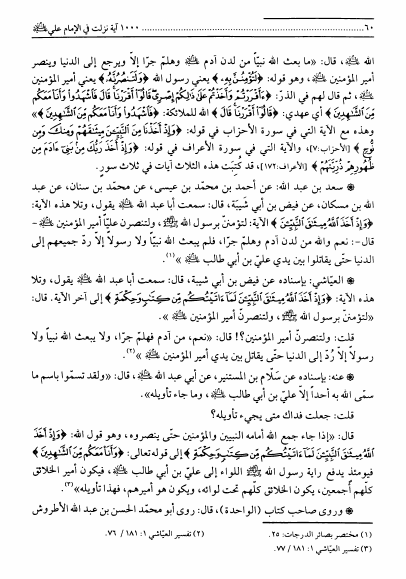 ٦٠ ........ ١٠٠٠ آية نزلت في الإمام علي ﷺ
الله ﷺ، قال: «ما بعث الله نبيّاً من لدن آدم ﷺ وهلمّ جرّا إلّا ويرجع إلى الدنيا وينصر
أمير المؤمنين ﷺ، وهو قوله: ﴿لَتُؤْمِنُنَّ بِهِ﴾ يعني رسول الله ﴿وَلَتَنصُرُنَّهُ﴾ يعني أمير المؤمنين
ﷺ، ثم قال لهم في الذرّ: ﴿ءَأَقْرَرْتُمْ وَأَخَذْتُمْ عَلَى ذَٰلِكُمْ إِصْرِي قَالُوا أَقْرَرْنَا قَالَ فَاشْهَدُوا وَأَنَا مَعَكُم
مِّنَ الشَّاهِدِينَ﴾ أي عهدي: ﴿قَالُوا أَقْرَرْنَا قَالَ﴾ الله للملائكة: ﴿فَاشْهَدُوا وَأَنَا مَعَكُم مِّنَ الشَّاهِدِينَ﴾»
وهذه مع الآية التي في سورة الأحزاب في قوله: ﴿وَإِذْ أَخَذْنَا مِنَ النَّبِيِّينَ مِيثَاقَهُمْ وَمِنكَ وَمِن
نُّوحٍ﴾ [الأحزاب:٧]، والآية التي في سورة الأعراف في قوله: ﴿وَإِذْ أَخَذَ رَبُّكَ مِن بَنِي ءَادَمَ مِن
ظُهُورِهِمْ ذُرِّيَّتَهُمْ﴾ [الأعراف:١٧٢]، قد كُتِبَت هذه الثلاث آيات في ثلاث سور.
سعد بن عبد الله: عن أحمد بن محمّد بن عيسى، عن محمّد بن سنان، عن عبد
الله بن مسكان، عن فيض بن أبي شيبة، قال: سمعت أبا عبد الله ﷺ يقول، وتلا هذه الآية:
﴿وَإِذْ أَخَذَ اللَّهُ مِيثَاقَ النَّبِيِّينَ﴾ الآية: لتؤمننّ برسول الله ﷺ، ولتنصرن عليّاً أمير المؤمنين ﷺ–
قال–: نعم والله من لدن آدم وهلم جرّا، فلم يبعث الله نبيّاً ولا رسولاً إلّا ردّ جميعهم إلى
الدنيا حتّى يقاتلوا بين يدي عليّ بن أبي طالب ﷺ» (١).
العيّاشي: بإسناده عن فيض بن أبي شيبة، قال: سمعت أبا عبد الله ﷺ يقول، وتلا
هذه الآية: ﴿وَإِذْ أَخَذَ اللَّهُ مِيثَاقَ النَّبِيِّينَ لَمَا ءَاتَيْتُكُم مِّن كِتَابٍ وَحِكْمَةٍ﴾ إلى آخر الآية. قال:
«لتؤمننّ برسول الله ﷺ، ولتنصرنّ أمير المؤمنين ﷺ».
قلت: ولتنصرنّ أمير المؤمنين؟! قال: «نعم، من آدم فهلمّ جرا، ولا يبعث الله نبياً ولا
رسولاً إلّا رُدّ إلى الدنيا حتّى يقاتل بين يدي أمير المؤمنين ﷺ» (٢).
عنه: بإسناده عن سَلّام بن المستنير، عن أبي عبد الله ﷺ، قال: «ولقد تسمّوا باسم ما
سمّى الله به أحداً إلّا عليّ بن أبي طالب ﷺ، وما جاء تأويله».
قلت: جعلت فداك متى يجيء تأويله؟
قال: «إذا جاء جمع الله أمامه النبيين والمؤمنين حتّى ينصروه، وهو قول الله: ﴿وَإِذْ أَخَذَ
اللَّهُ مِيثَاقَ النَّبِيِّينَ لَمَا ءَاتَيْتُكُم مِّن كِتَابٍ وَحِكْمَةٍ﴾ إلى قوله تعالى: ﴿وَأَنَا مَعَكُم مِّنَ الشَّاهِدِينَ﴾
فيومئذ يدفع راية رسول الله ﷺ اللواء إلى عليّ بن أبي طالب ﷺ، فيكون أمير الخلائق
كلّهم أجمعين، يكون الخلائق كلّهم تحت لوائه، ويكون هو أميرهم، فهذا تأويله» (٣).
وروى صاحب كتاب (الواحدة)، قال: روى أبو محمّد الحسن بن عبد الله الأطروش
(١) مختصر بصائر الدرجات: ٢٥.
(٢) تفسير العيّاشي ١: ١٨١ / ٧٦.
(٣) تفسير العيّاشي ١: ١٨١ / ٧٧.